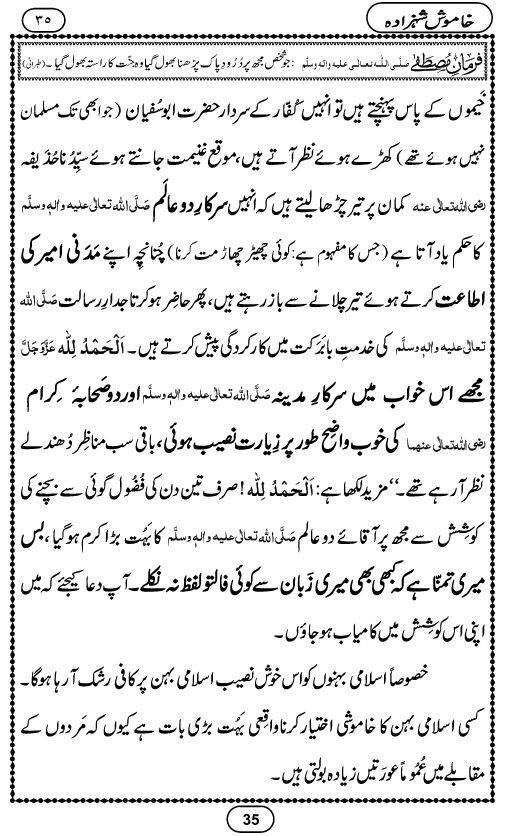 خاموش شہزادہ
۳۵
فرمانِ مصطَفٰے صلَّی اللہ تعالیٰ علیہ والہٖ وسلَّم : جو شخص مجھ پر دُرُودِ پاک پڑھنا بھول گیا وہ جنّت کا راستہ بھول گیا ۔ (طبرانی)
خَیموں کے پاس پہنچتے ہیں تو انہیں کُفّار کے سردار حضرت ابوسُفیان (جو ابھی تک مسلمان
نہیں ہوئے تھے) کھڑے ہوئے نظر آتے ہیں، موقع غنیمت جانتے ہوئے سیِّدُنا حُذَیفہ
رضی اللہ تعالیٰ عنہ کمان پر تیر چڑھا لیتے ہیں کہ انہیں سرکارِ دو عالَم صَلَّی اللہ تعالیٰ علیہ والہٖ وسلَّم
کا حکم یاد آتا ہے (جس کا مفہوم ہے: کوئی چھیڑ چھاڑ مت کرنا) چُنانچِہ اپنے مَدَنی امیر کی
اطاعت کرتے ہوئے تیر چلانے سے باز رہتے ہیں، پھر حاضِر ہو کر تاجدارِ رسالت صَلَّی اللہ
تعالیٰ علیہ والہٖ وسلَّم کی خدمتِ بابَرَکت میں کارکردگی پیش کرتے ہیں ۔ اَلْحَمْدُ لِلّٰہ عَزَّوَجَلَّ
مجھے اس خواب میں سرکارِ مدینہ صَلَّی اللہ تعالیٰ علیہ والہٖ وسلَّم اور دو صَحابۂ کِرام
رضی اللہ تعالیٰ عنہما کی خوب واضِح طور پر زِیارت نصیب ہوئی، باقی سب مناظِر دُھندلے
نظر آ رہے تھے۔“ مزید لکھا ہے: اَلْحَمْدُ لِلّٰہ ! صرف تین دن کی فُضُول گوئی سے بچنے کی
کوشِش سے مجھ پر آقائے دو عالم صَلَّی اللہ تعالیٰ علیہ والہٖ وسلَّم کا بَہُت بڑا کرم ہو گیا ، بس
میری تمنّا ہے کہ کبھی بھی میری زَبان سے کوئی فالتو لفظ نہ نکلے۔ آپ دعا کیجئے کہ میں
اپنی اس کوشِش میں کامیاب ہو جاؤں ۔
خصوصاً اسلامی بہنوں کو اس خوش نصیب اسلامی بہن پر کافی رشک آ رہا ہوگا۔
کسی اسلامی بہن کا خاموشی اختیار کرنا واقِعی بَہُت بڑی بات ہے کیوں کہ مَردوں کے
مقابلے میں عُمُوماً عورَتیں زیادہ بولتی ہیں ۔
35